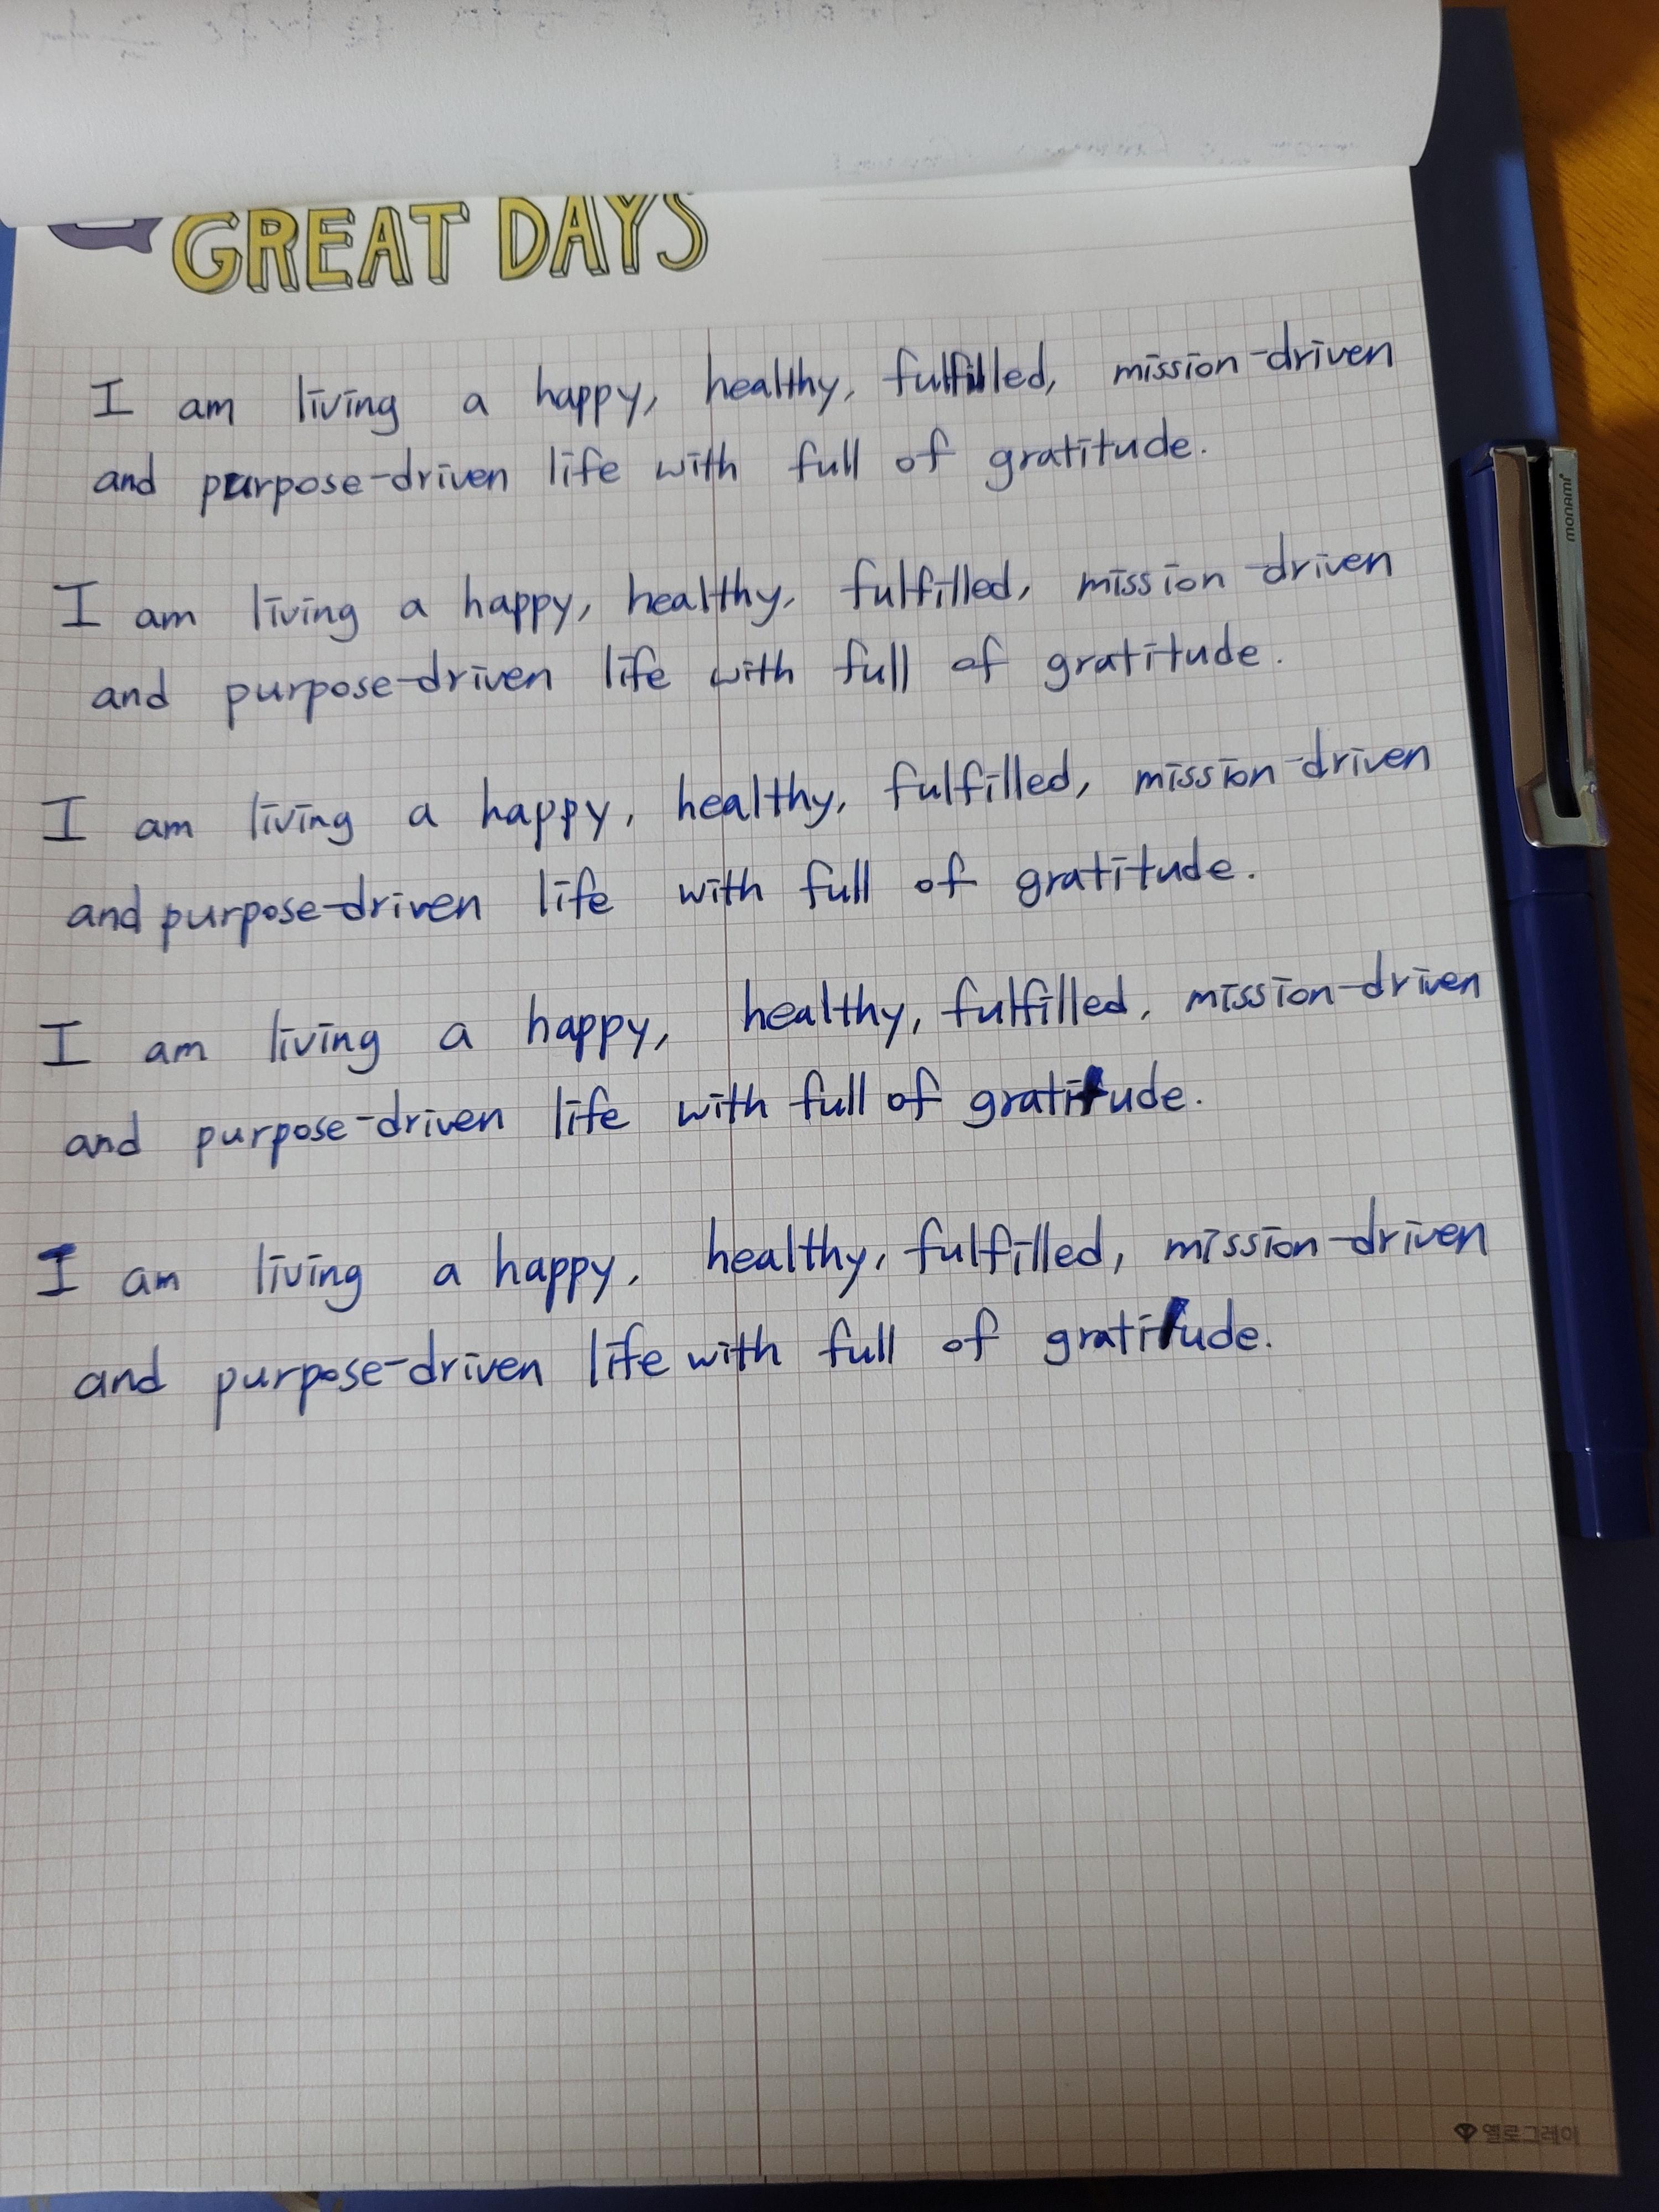 GREAT DAYS
I am living a happy, healthy, fulfilled, mission-driven
and purpose-driven life with full of gratitude.
I am living a happy, healthy, fulfilled, mission-driven
and purpose-driven life with full of gratitude.
I am living a happy, healthy, fulfilled, mission-driven
and purpose-driven life with full of gratitude.
I am living a happy, healthy, fulfilled, mission-driven
and purpose-driven life with full of gratitude.
I am living a happy, healthy, fulfilled, mission-driven
and purpose-driven life with full of gratitude.
monami
옐로그레이